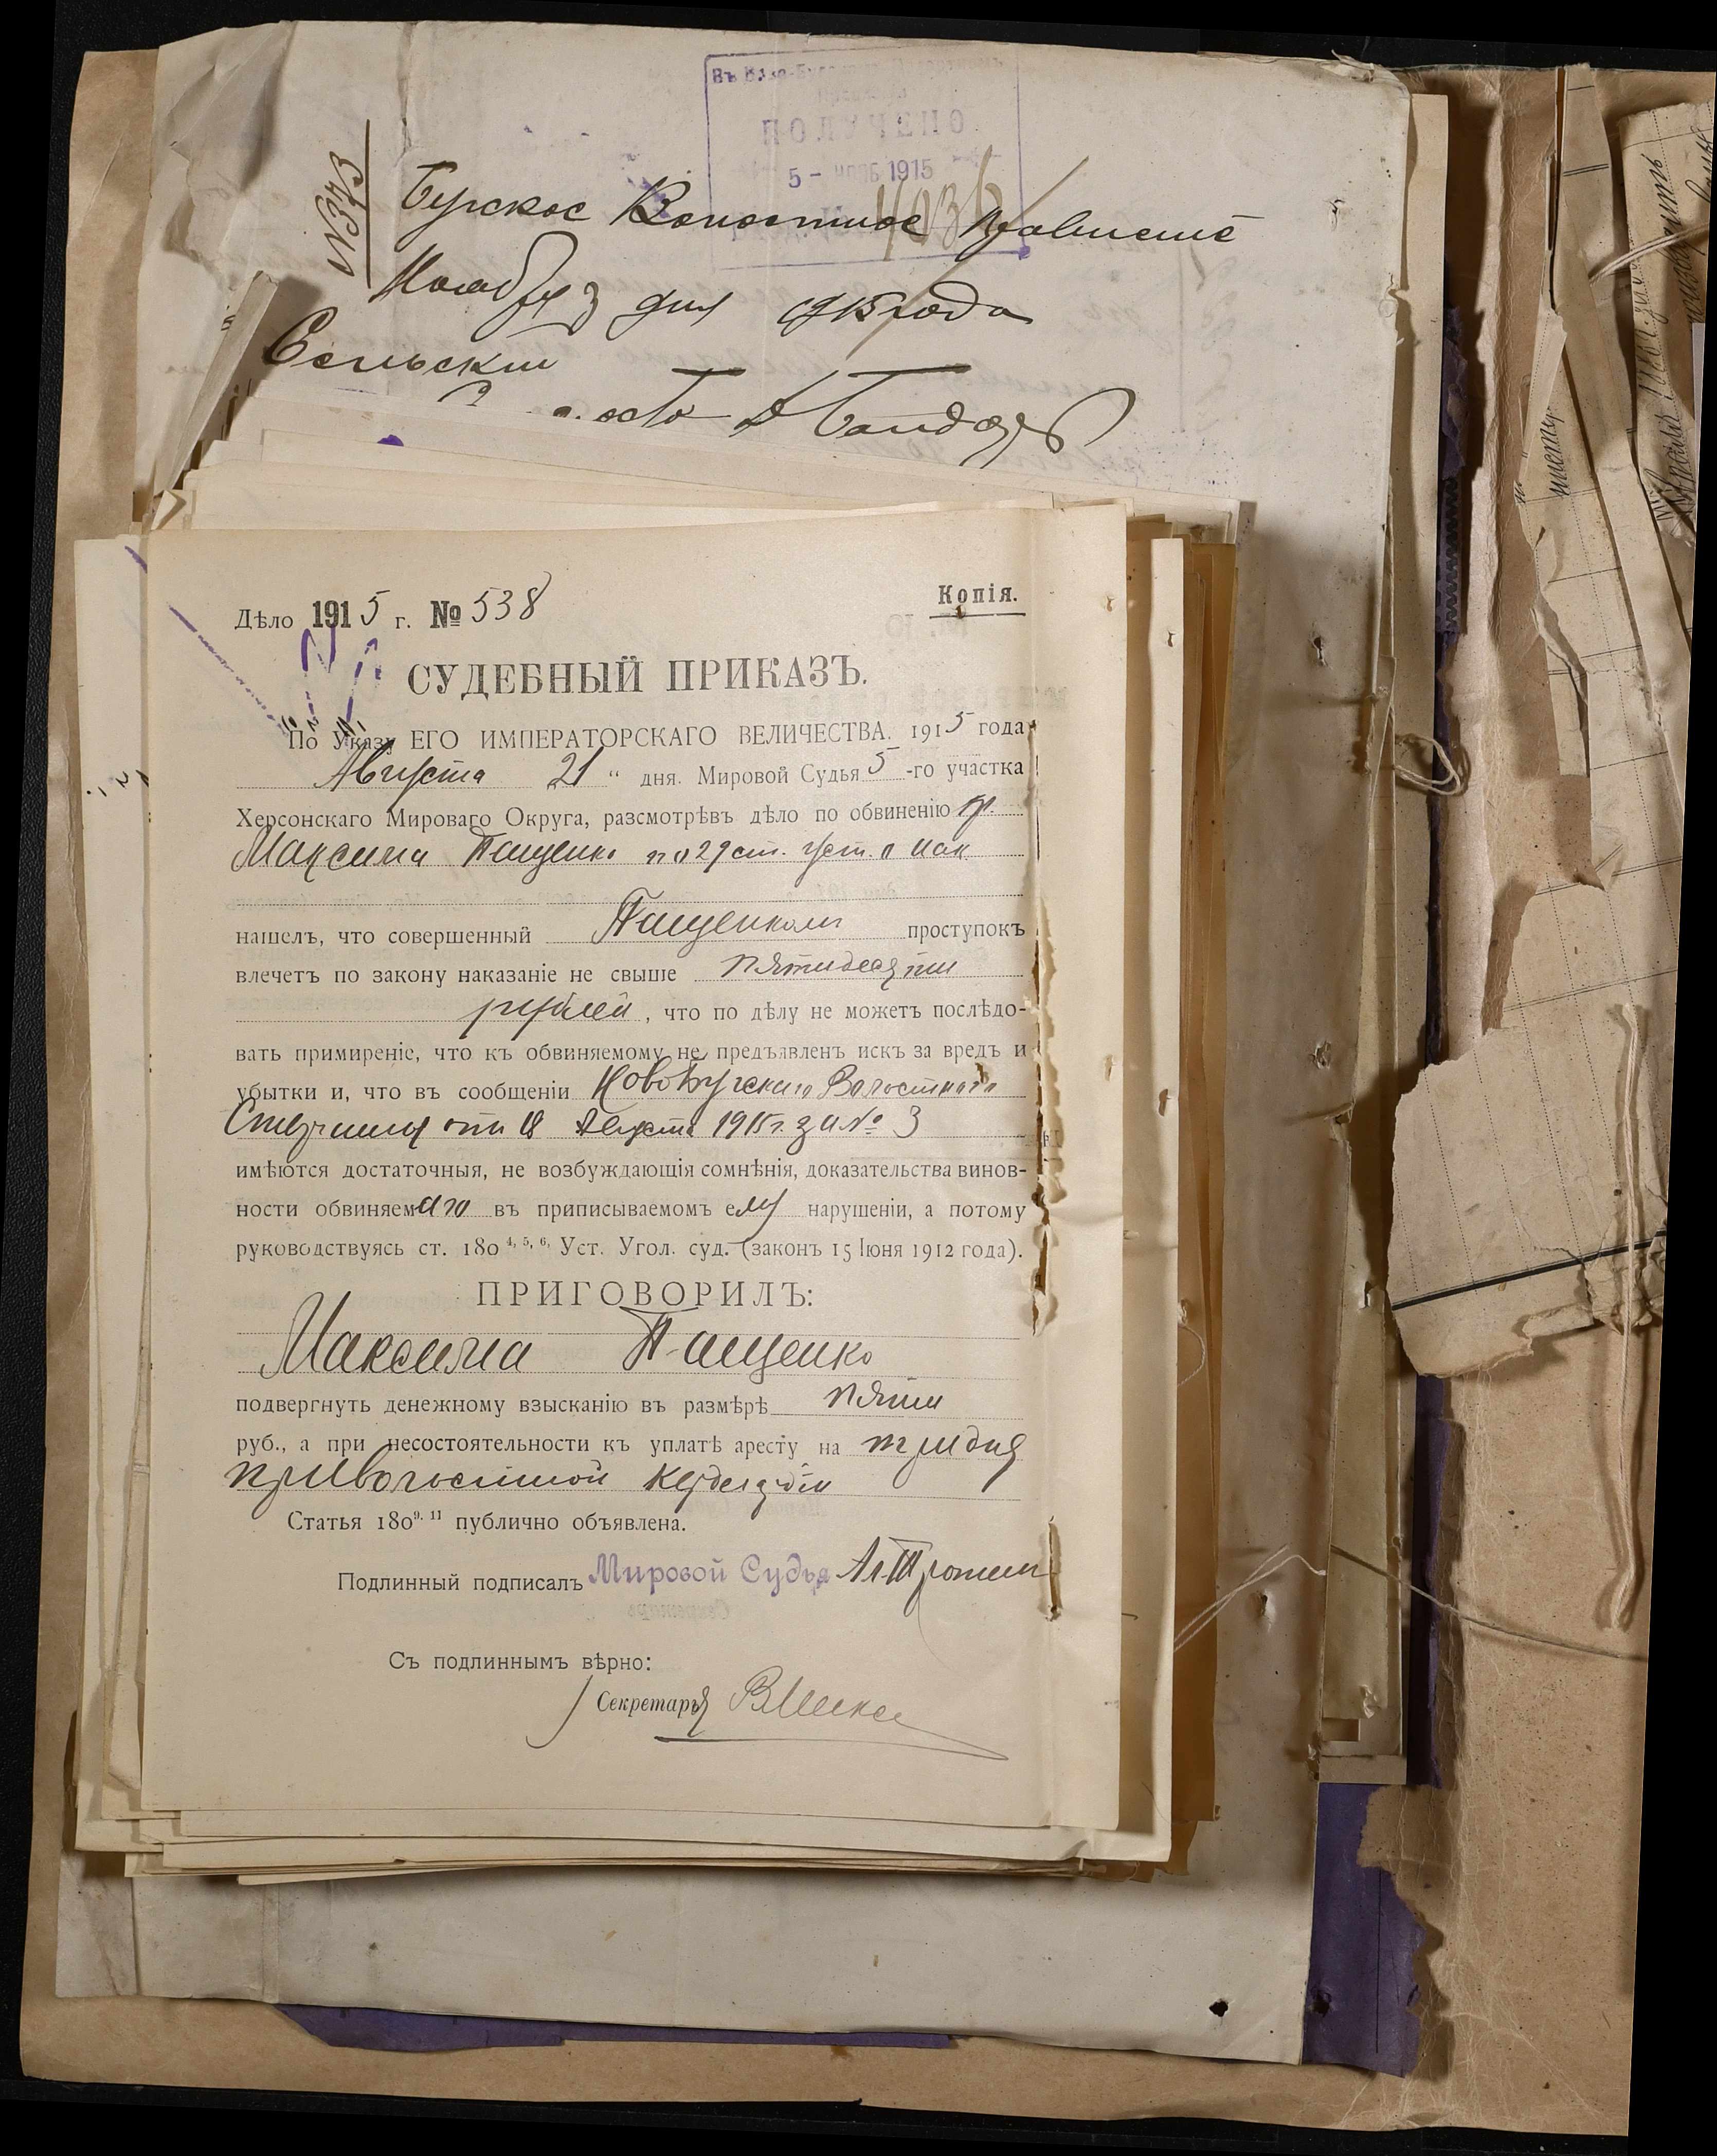 ПОЛУЧЕНО
5 - НОЯБ 1915
№373
Бугское Волостное Правление
Ноября 3 дня 1915 года
Сельский
Дѣло 1915 г. № 538
Копія.
СУДЕБНЫЙ ПРИКАЗЪ.
По Указу ЕГО ИМПЕРАТОРСКАГО ВЕЛИЧЕСТВА. 1915 года
Августа 21 " дня. Мировой Судья 5-го участка
Херсонскаго Мироваго Округа, разсмотрѣвъ дѣло по обвиненію кр.
Максима Пащенко по 29 ст. уст. о нак
нашелъ, что совершенный Пащенкомъ проступокъ
влечетъ по закону наказаніе не свыше пятидесяти
рублей, что по дѣлу не можетъ послѣдо-
вать примиреніе, что къ обвиняемому не предъявленъ искъ за вредъ и
убытки и, что въ сообщеніи Новобугскаго Волостнаго
Старшины отъ 18 Августа 1915 г. за № 3
имѣются достаточныя, не возбуждающія сомнѣнія, доказательства винов-
ности обвиняемаго въ приписываемомъ ему нарушеніи, а потому
руководствуясь ст. 180 4, 5, 6, Уст. Угол. суд. (законъ 15 Іюня 1912 года).
ПРИГОВОРИЛЪ:
Максима Пащенко
подвергнуть денежному взысканію въ размѣрѣ пяти
руб., а при несостоятельности къ уплатѣ аресту на три дня
при волостной
Статья 180 9, 11 публично объявлена.
Подлинный подписалъ Мировой Судья
Съ подлиннымъ вѣрно:
Секретарь